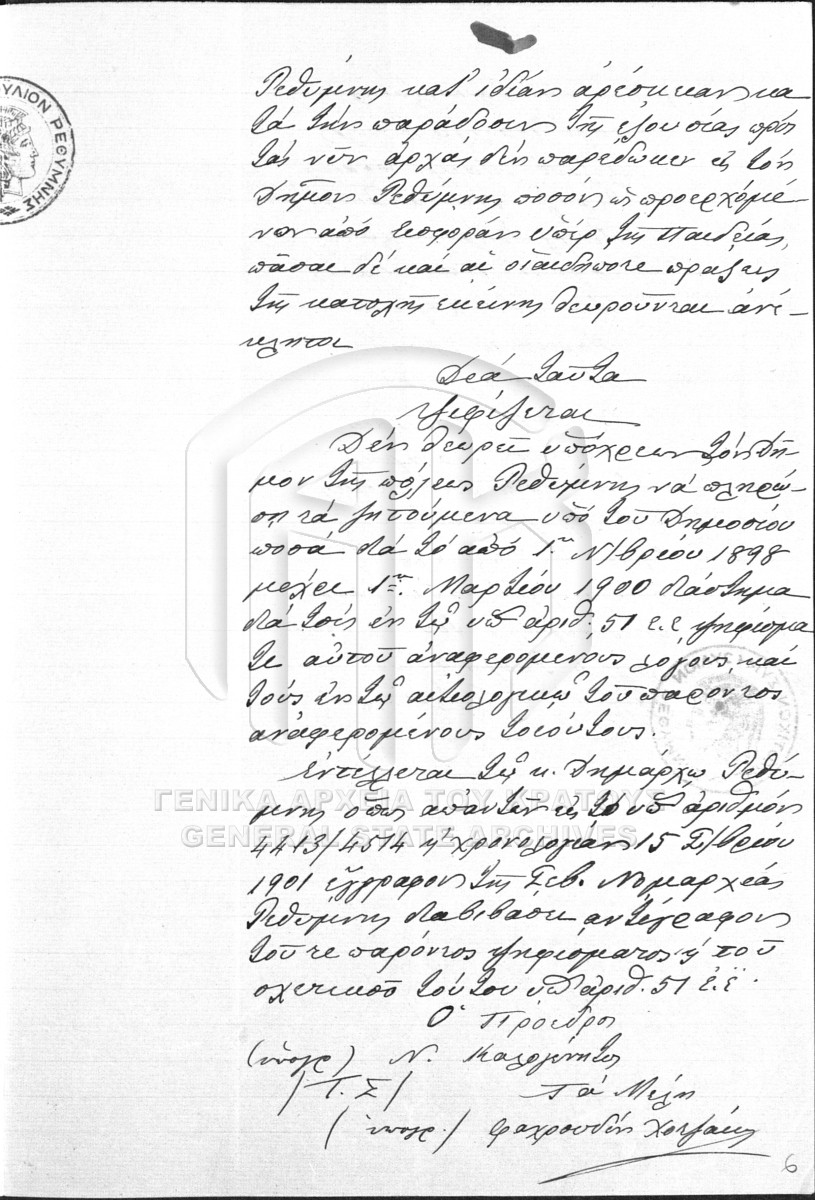 Ρεθύμνης κατ' ιδίαν αρέσκειαν κα
τά την παράδοσιν της εξουσίας προς
τας νυν αρχάς δεν παρέδωκεν εις τον
Δήμον Ρεθύμνης ποσόν ως προερχόμε-
νον από εισφοράν υπέρ της Παιδείας,
πάσαι δε και αι οιαιδήποτε πράξεις
της κατοχής εκείνης θεωρούνται ανέ-
κλητοι
Διά ταύτα
ψηφίζεται
Δεν θεωρεί υπόχρεων τον Δή-
μον της πόλεως Ρεθύμνης να πληρώ-
ση τα ζητούμενα υπό του Δημοσίου
ποσά διά το από 1ης Ν/βρίου 1898
μέχρι 1ης Μαρτίου 1900 διάστημα
διά τους εν τω υπ' αριθ. 51 ε.ε ψηφίσμα
τι αυτού αναφερομένους λόγους, και
τους εν τω αιτιολογικώ του παρόντος
αναφερομένους τοιούτους.
Εντέλλεται τω κ. Δημάρχω Ρεθύ-
μνης όπως απαντών εις το υπ' αριθμόν
4413/4514 ή χρονολογίαν 15 Σ/βρίου
1901 έγγραφον της Σεβ. Νομαρχίας
Ρεθύμνης διαβιβάση αντίγραφον
του τε παρόντος ψηφίσματος ή του
σχετικού τούτου υπ' αριθ. 51 ε.ε.
Ο Πρόεδρος
(υπογρ) Ν. Καλογέννητος
/Τ.Σ/ Τα Μέλη
(υπογρ.) Φαχρουδίν Χοτζάκης
6
ΡΕΘΥΜΝΗΣ
ΓΕΝΙΚΑ ΑΡΧΕΙΑ ΤΟΥ ΚΡΑΤΟΥΣ
GENERAL STATE ARCHIVES